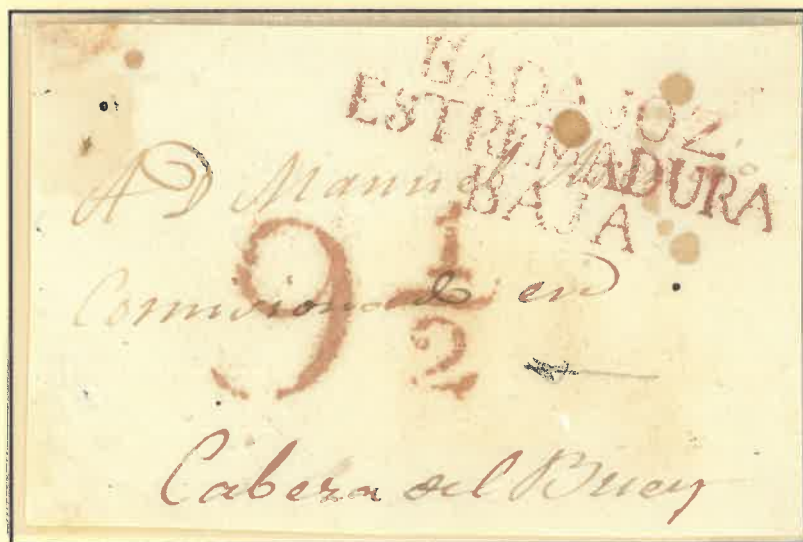 BADAJOZ
ESTREMADURA
BAJA
A D Manuel
9 1/2
Comisionado en
Cabeza del Buey